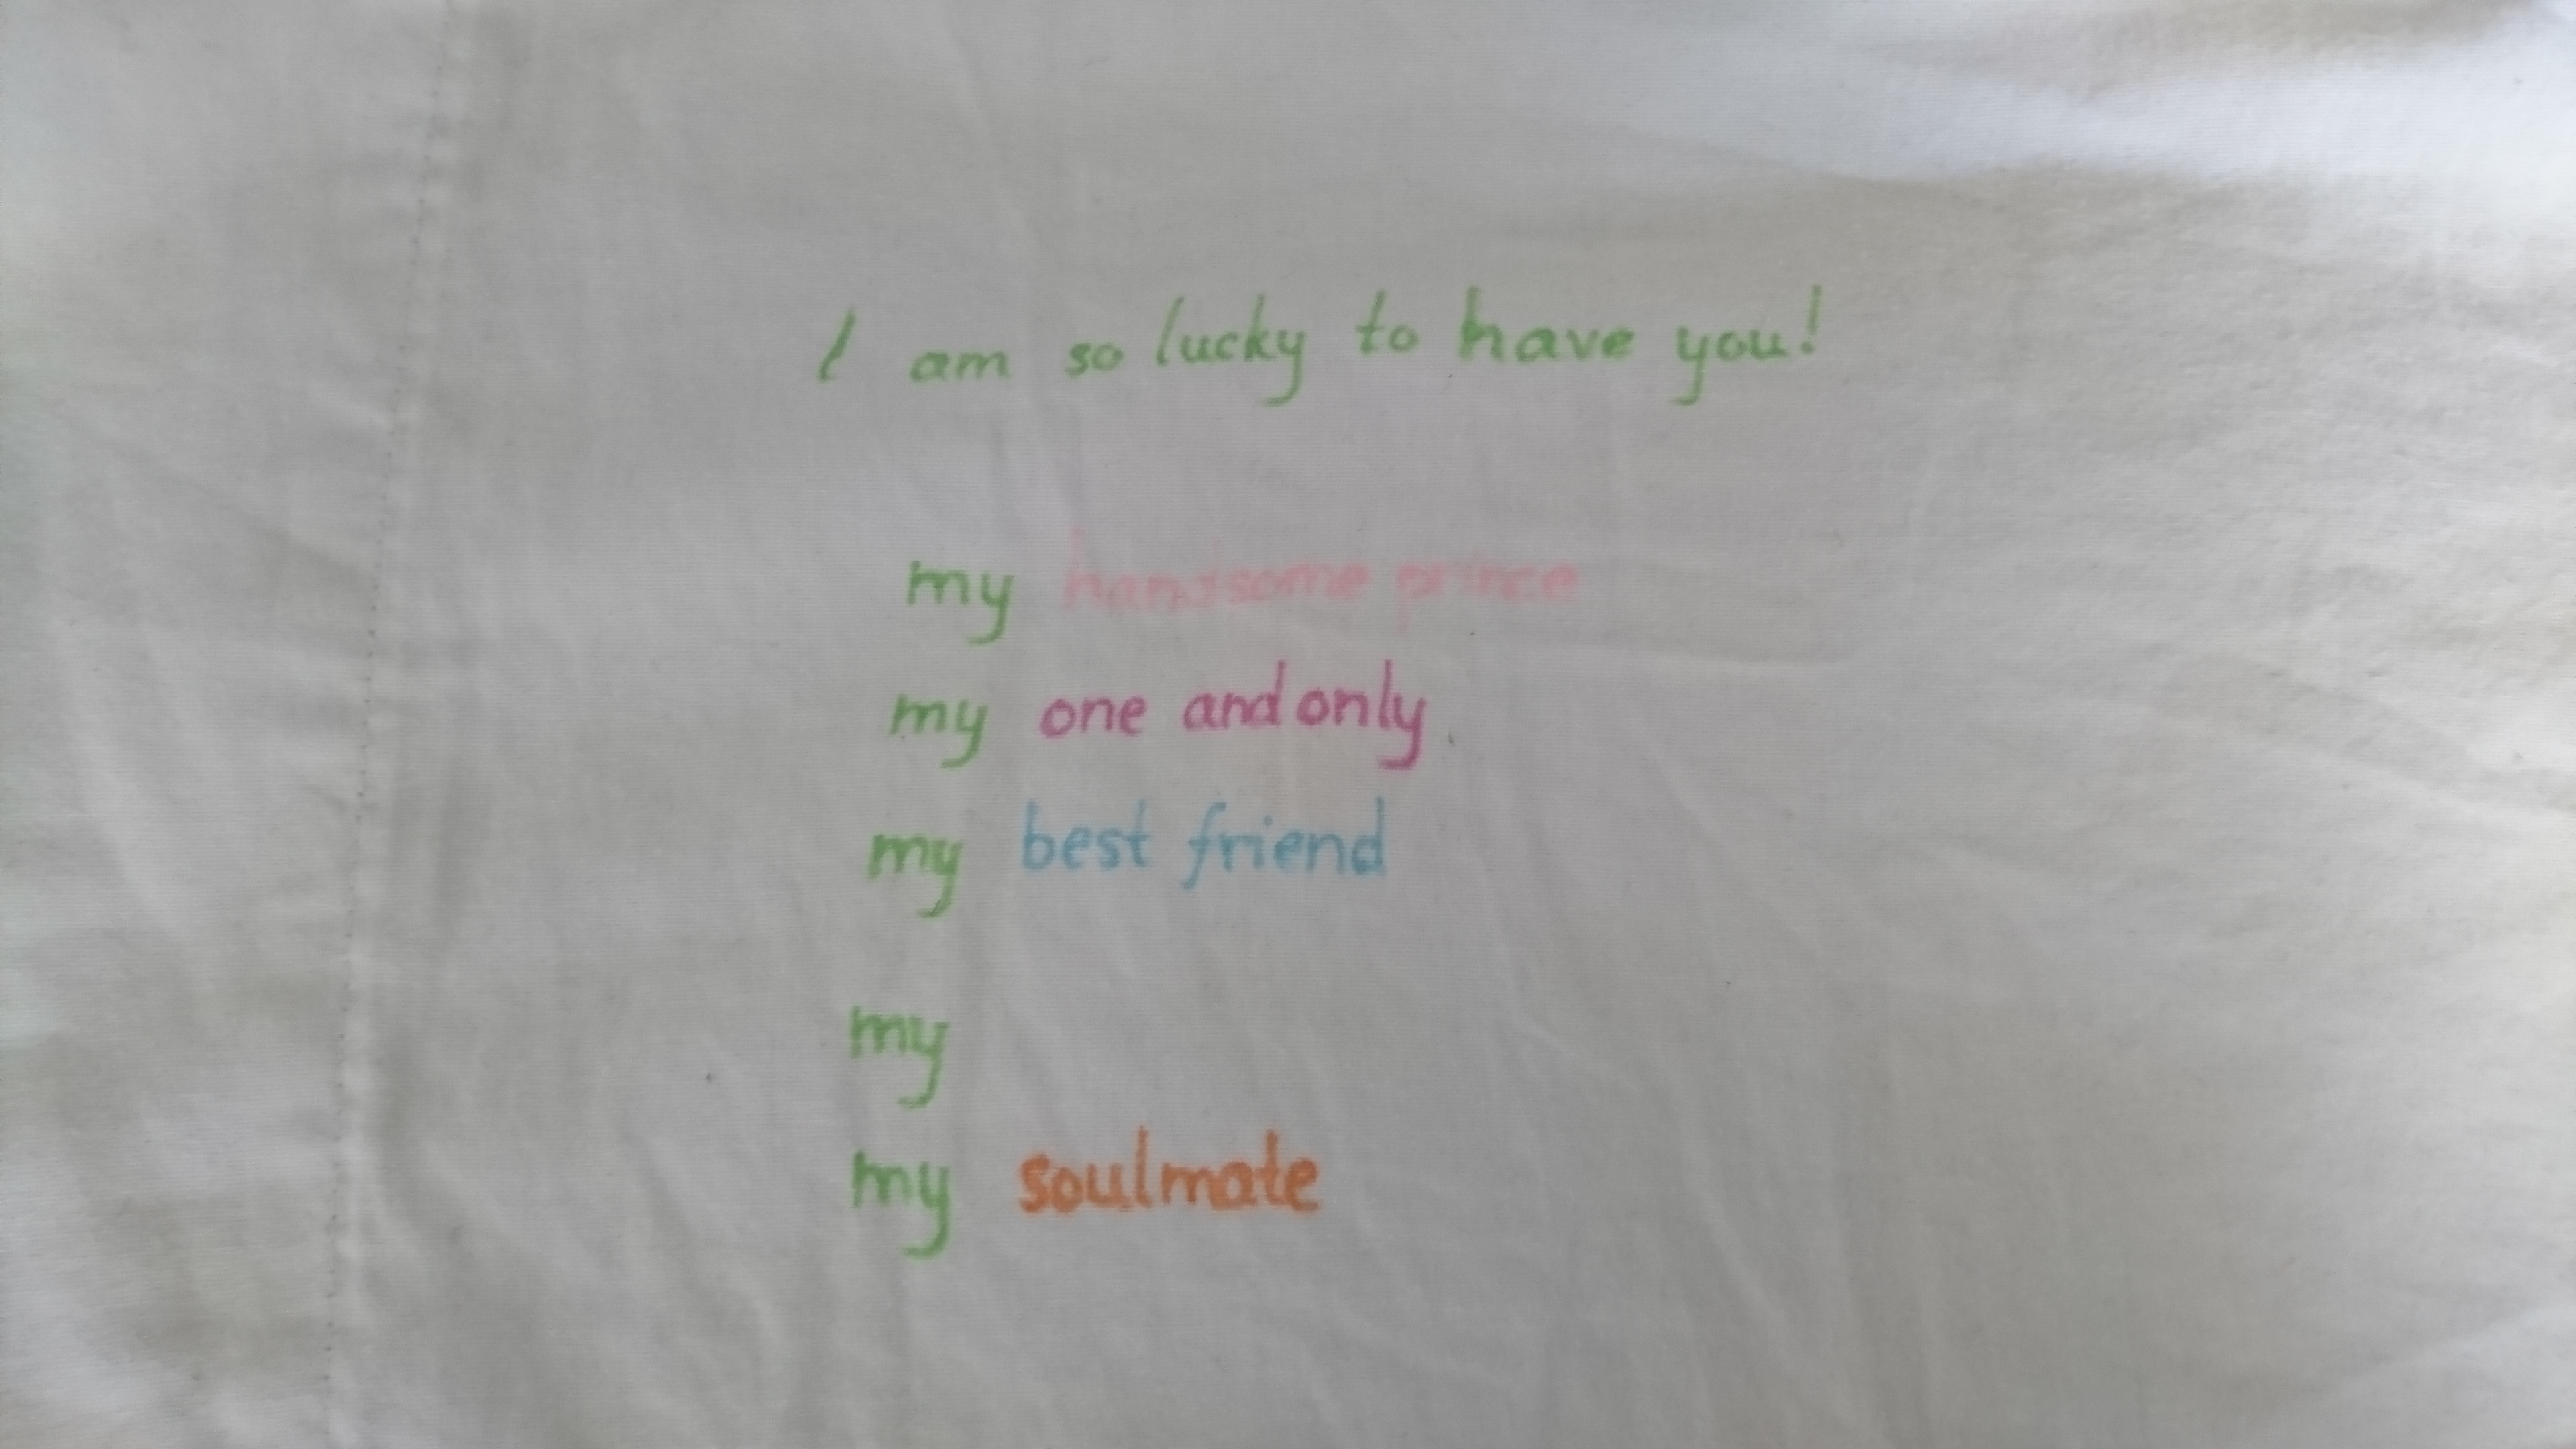 I am so lucky to have you!
my handsome prince
my one and only
my best friend
my
my soulmate